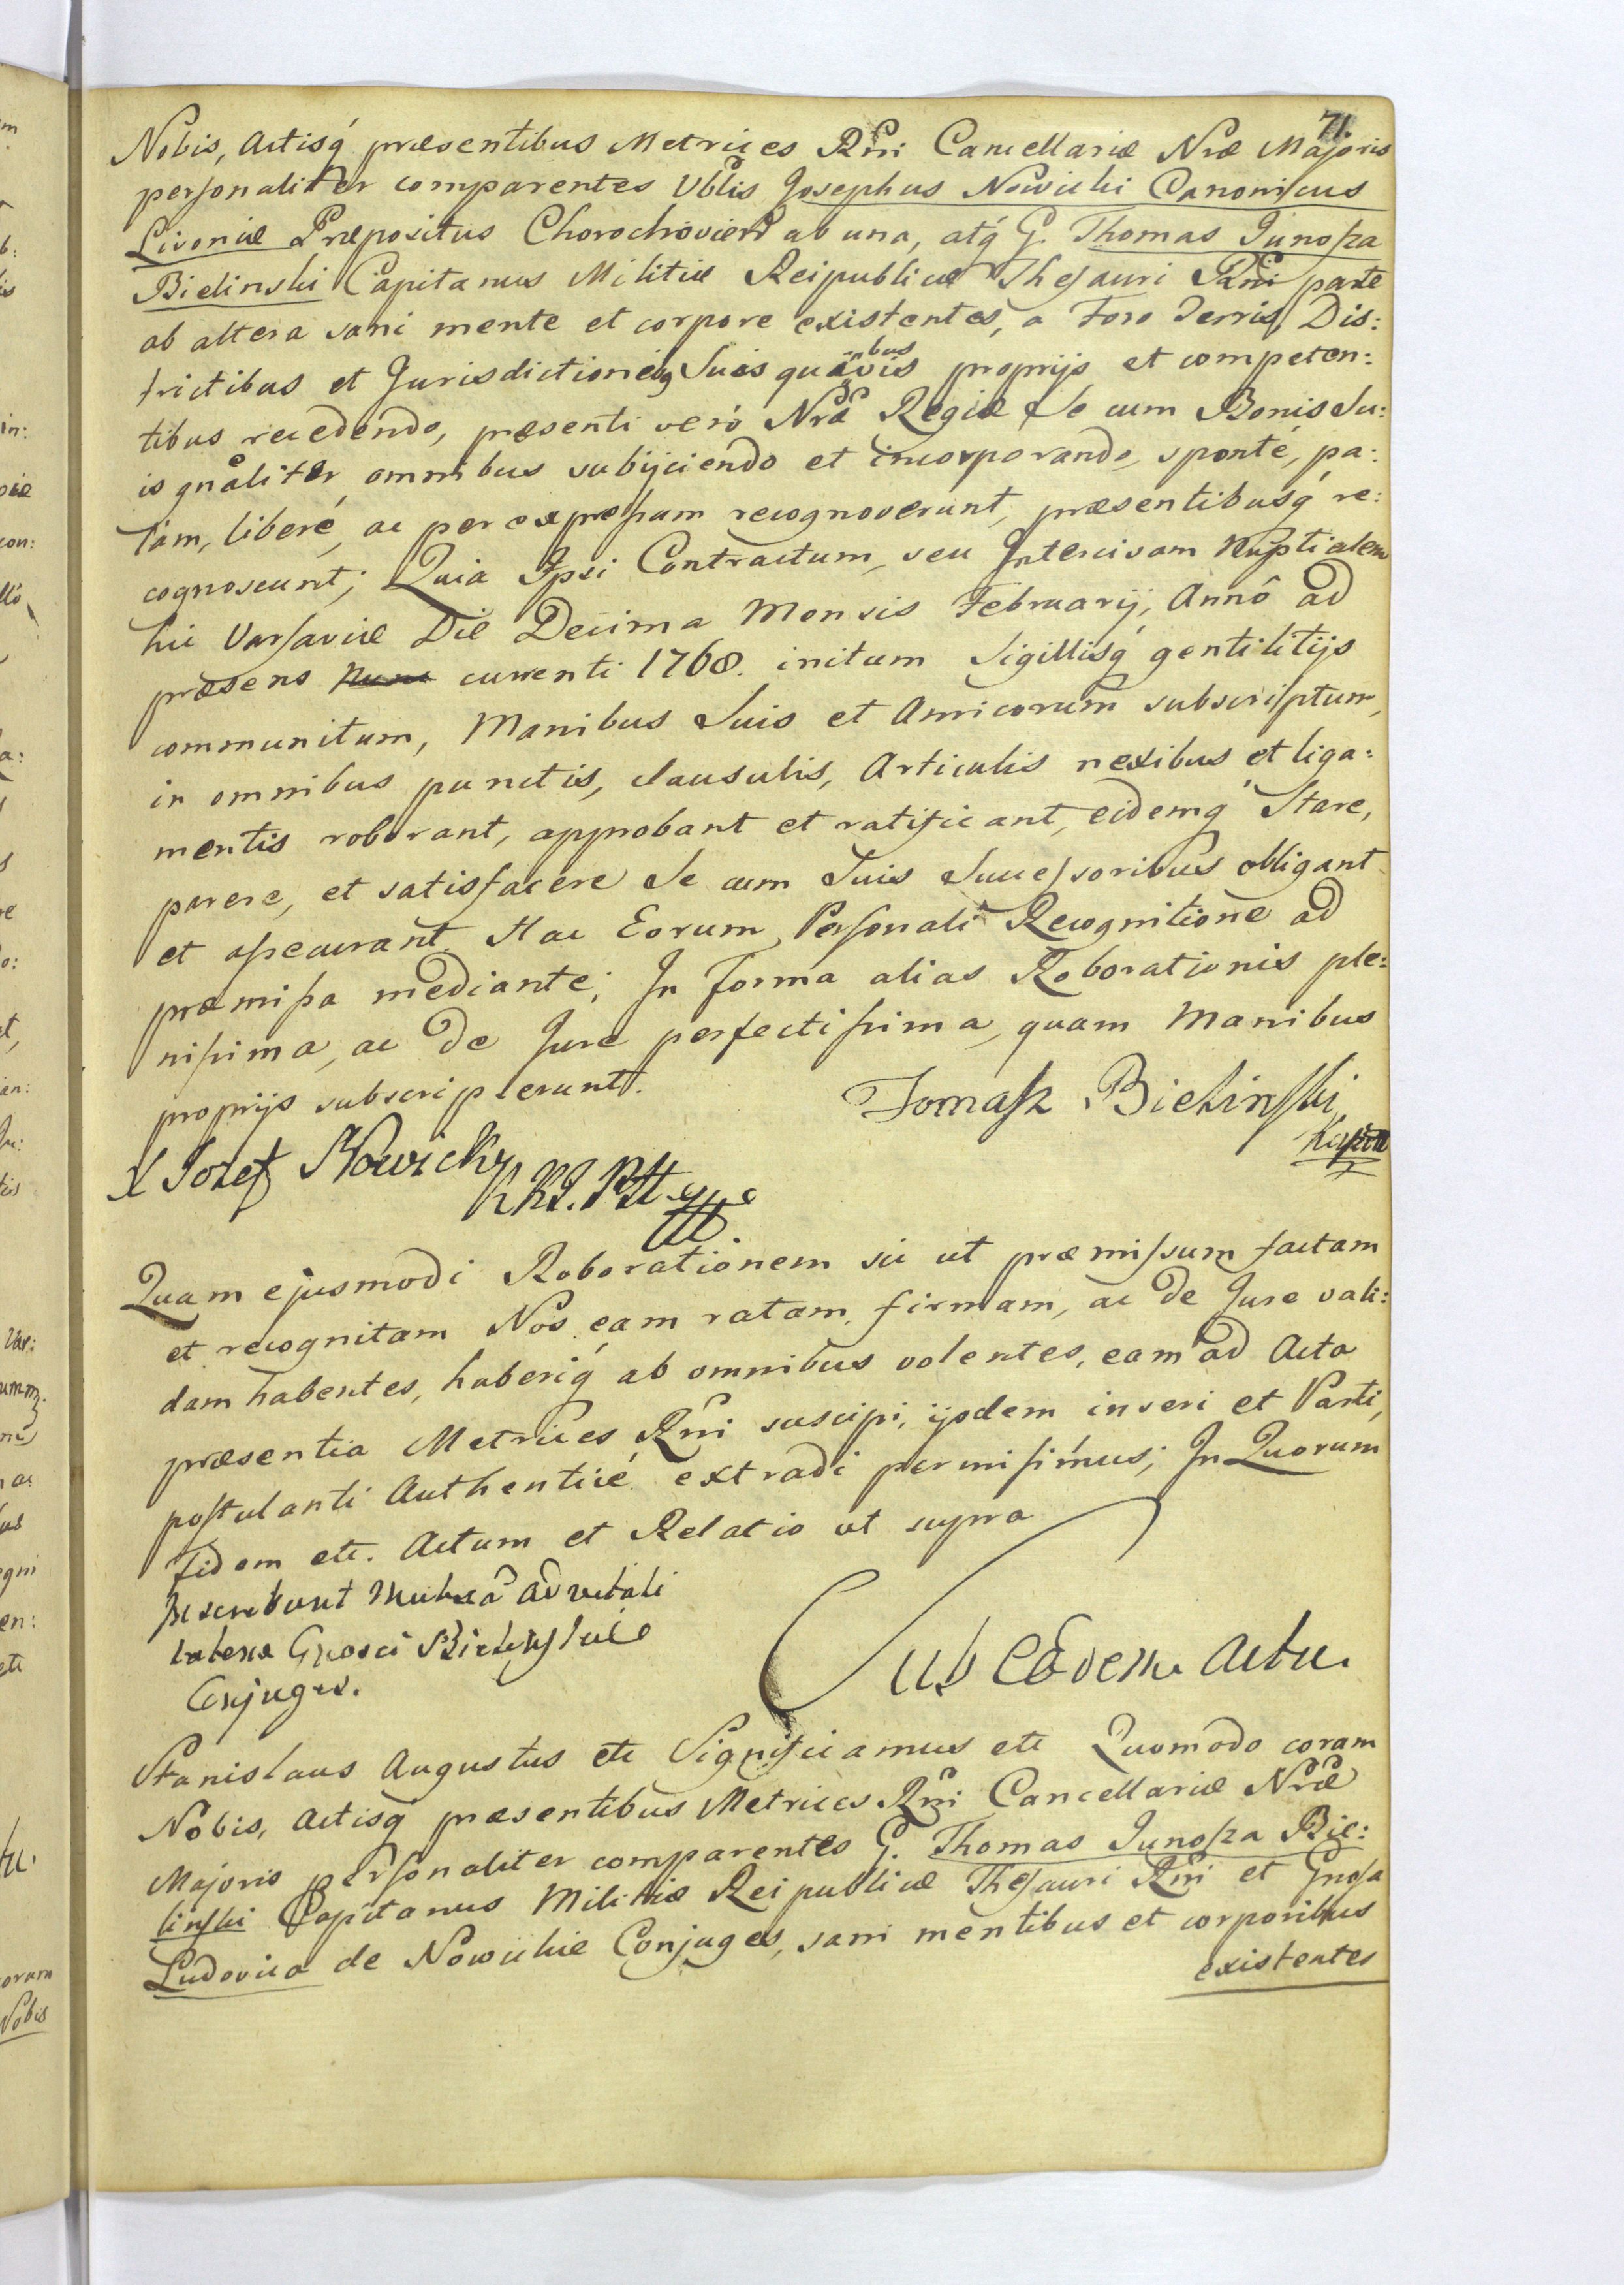 71.
Nobis, Actisq́ præsentibus Metrices Rñi Cancellariæ Nræ Majoris
personaliter comparentes Vblis Josephus Nowicki Canonicus
Livoniæ Præpositus ab una, atq́ G. Thomas Junosza
Bielinski Capitaneus Militiæ Reipublicæ Thesauri Rñi parte
ab altera sani mente et corpore existentes, a Foro Terris, Dis:
trictibus et Jurisdictionibq Suis quibusvis proprijs et competen:
tibus recedendo, præsenti veró Nrã Regiæ Se cum Bonis Su:
is gnãliter omnibus subijciendo et incorporando, sponté, pa:
lám, liberé, ac per expressum recognoverunt, præsentibusq́ re:
cognoscunt; Quia Ipsi Contractum, seu Intercisam Nuptialem
hic Varsaviæ Die Decima Mensis Februarij, Annô ad
præsens currenti 1768. initum Sigillisq́ gentilitijs
communitum, Manibus Suis et Amicorum subscriptum,
in omnibus punctis, clausulis, Articulis nexibus et liga:
mentis roborant, approbant et ratificant, eidemq́ Stare,
parere, et satisfacere Se cum Suis Successoribus obligant
et assecurant, Hac Eorum Personali Recognitione ad
præmissa mediante; In Forma alias Roborationis ple:
nissima, ac de Jure perfectissima, quam Manibus
proprijs subscripserunt.
Tomasz Bielinski
X Jozef Nowicki
Quam ejusmodi Roborationem sic ut præmissum factam
et recognitam Nos eam ratam, firmam, ac de Jure vali:
dam habentes, haberiq́ ab omnibus volentes, eam ad Acta
præsentia Metrices Rñi suscipi, ijsdem inseri et Parti,
postulanti Authenticé extradi permisimus; In Quorum
Fidem etc. Actum et Relatio ut supra
Inscribunt Mutuã Advitali
Bielinskie
Conjuges.
Sub eodem Actu.
Stanislaus Augustus etc Significamus etc Quomodo coram
Nobis, Actisq́ præsentibus Metrices Rñi Cancellariæ Nræ
Majoris personaliter comparentes G. Thomas Junosza Bie:
linski Capitaneus Militiæ Reipublicæ Thesauri Rñi et Gnosa
Ludovica de Nowickie Conjuges, sani mentibus et corporibus
existentes